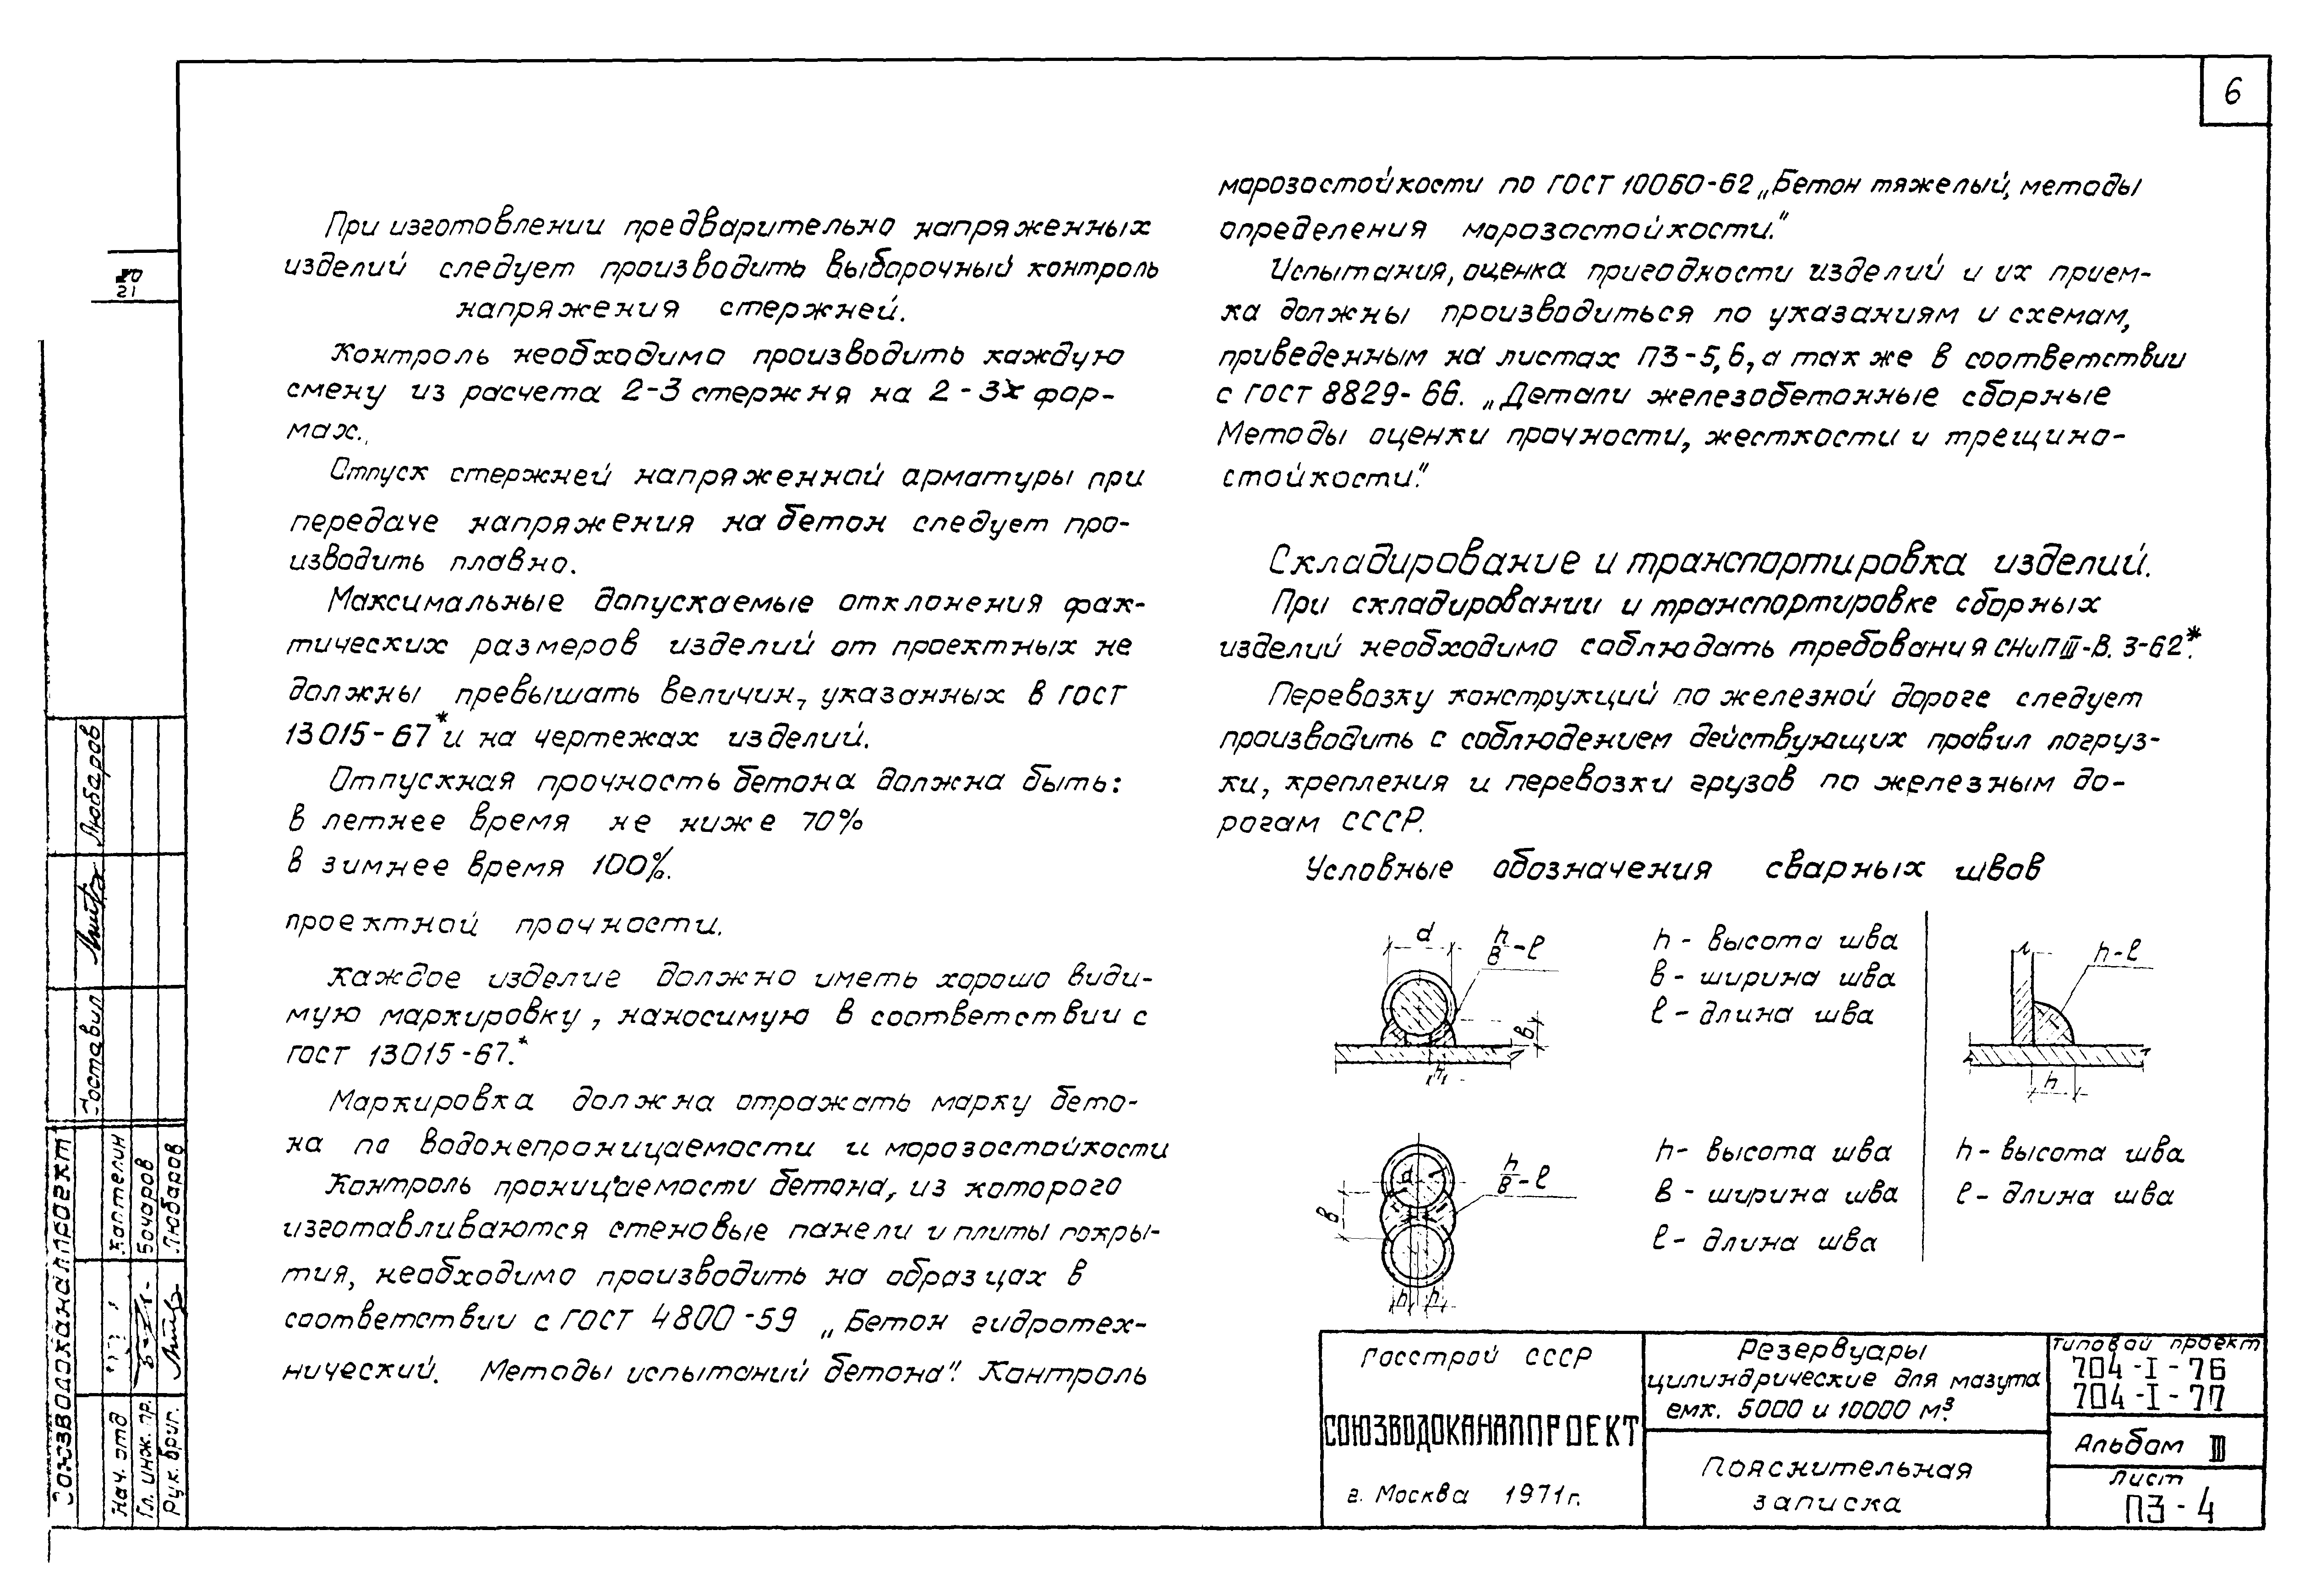 6
При изготовлении предварительно напряженных
изделий следует производить выборочный контроль
напряжения стержней.
Контроль необходимо производить каждую
смену из расчета 2-3 стержня на 2-3х фор-
мах.
Отпуск стержней напряженной арматуры при
передаче напряжения на бетон следует про-
изводить плавно.
Максимальные допускаемые отклонения фак-
тических размеров изделий от проектных не
должны превышать величин, указанных в ГОСТ
13015-67* и на чертежах изделий.
Отпускная прочность бетона должна быть:
в летнее время не ниже 70%
в зимнее время 100%.
проектной прочности.
Каждое изделие должно иметь хорошо види-
мую маркировку, наносимую в соответствии с
ГОСТ 13015-67.*
Маркировка должна отражать марку бето-
на по водонепроницаемости и морозостойкости
Контроль проницаемости бетона, из которого
изготавливаются стеновые панели и плиты покры-
тия, необходимо производить на образцах в
соответствии с ГОСТ 4800-59 „Бетон гидротех-
нический. Методы испытаний бетона". Контроль
морозостойкости по ГОСТ 10060-62 „Бетон тяжелый, методы
определения морозостойкости."
Испытания, оценка пригодности изделий и их прием-
ка должны производиться по указаниям и схемам,
приведенным на листах ПЗ-5,6, а так же в соответствии
с ГОСТ 8829-66. „Детали железобетонные сборные
Методы оценки прочности, жесткости и трещино-
стойкости."
Складирование и транспортировка изделий.
При складировании и транспортировке сборных
изделий необходимо соблюдать требования СНиП III-В. 3-62*.
Перевозку конструкций по железной дороге следует
производить с соблюдением действующих правил погруз-
ки, крепления и перевозки грузов по железным до-
рогам СССР.
Условные обозначения сварных швов
d
h/в-l
в
h
h - высота шва
в - ширина шва
l - длина шва
h-l
h
d
h/в-l
в
h h
h - высота шва
в - ширина шва
l - длина шва
h - высота шва
l - длина шва
Госстрой СССР
СОЮЗВОДОКАНАЛПРОЕКТ
г. Москва 1971г.
Резервуары
цилиндрические для мазута
емк. 5000 и 10000 м³.
Пояснительная
записка
типовой проект
704-I-76
704-I-77
Альбом III
лист
ПЗ-4
21
Любаров
Составил
Союзводоканалпроект
Нач. отд Каптелин
Гл. инж. пр. Бочаров
Рук. бриг. Любаров